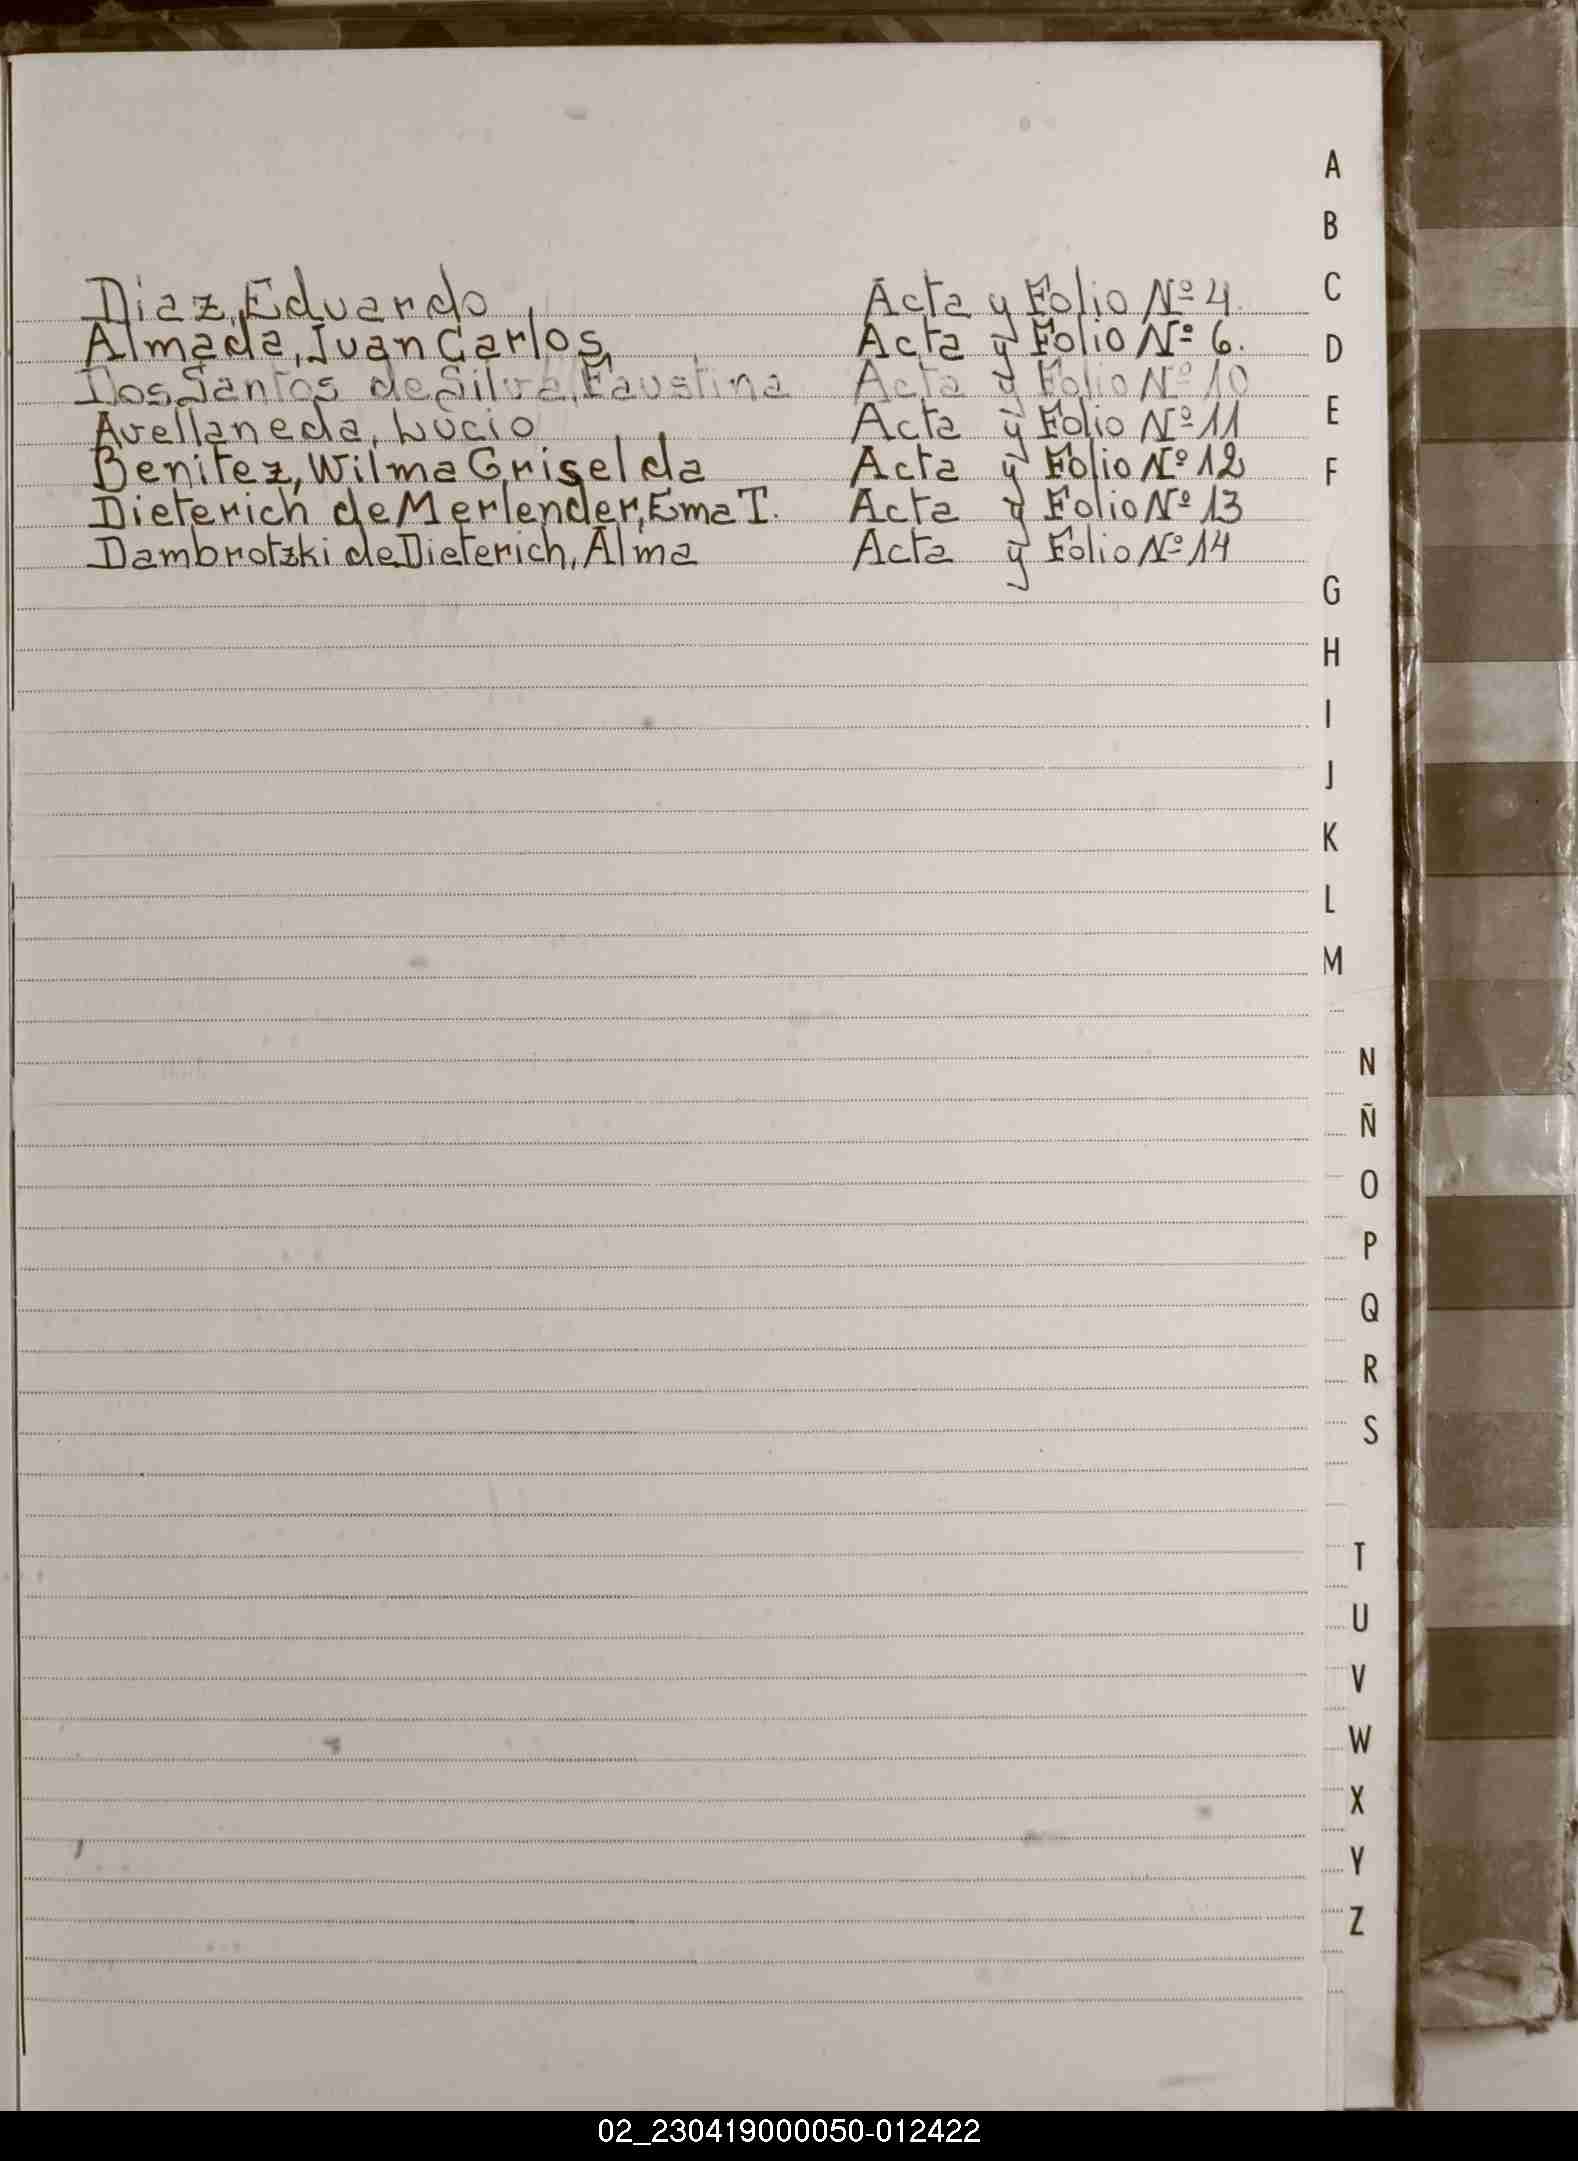 A
B
C
Diaz, Eduardo Acta y Folio Nº 4.
Almada, Juan Carlos, Acta y Folio Nº 6.
D
Dos Santos de Silva, Faustina Acta y Folio Nº 10
Avellaneda, Lucio Acta y Folio Nº 11
E
Benitez, Wilma Griselda Acta y Folio Nº 12
F
Dieterich de Merlender, Ema T. Acta y Folio Nº 13
Dambrotzki de Dieterich, Alma Acta y Folio Nº 14
G
H
I
J
K
L
M
N
Ñ
O
P
Q
R
S
T
U
V
W
X
Y
Z
02_230419000050-012422